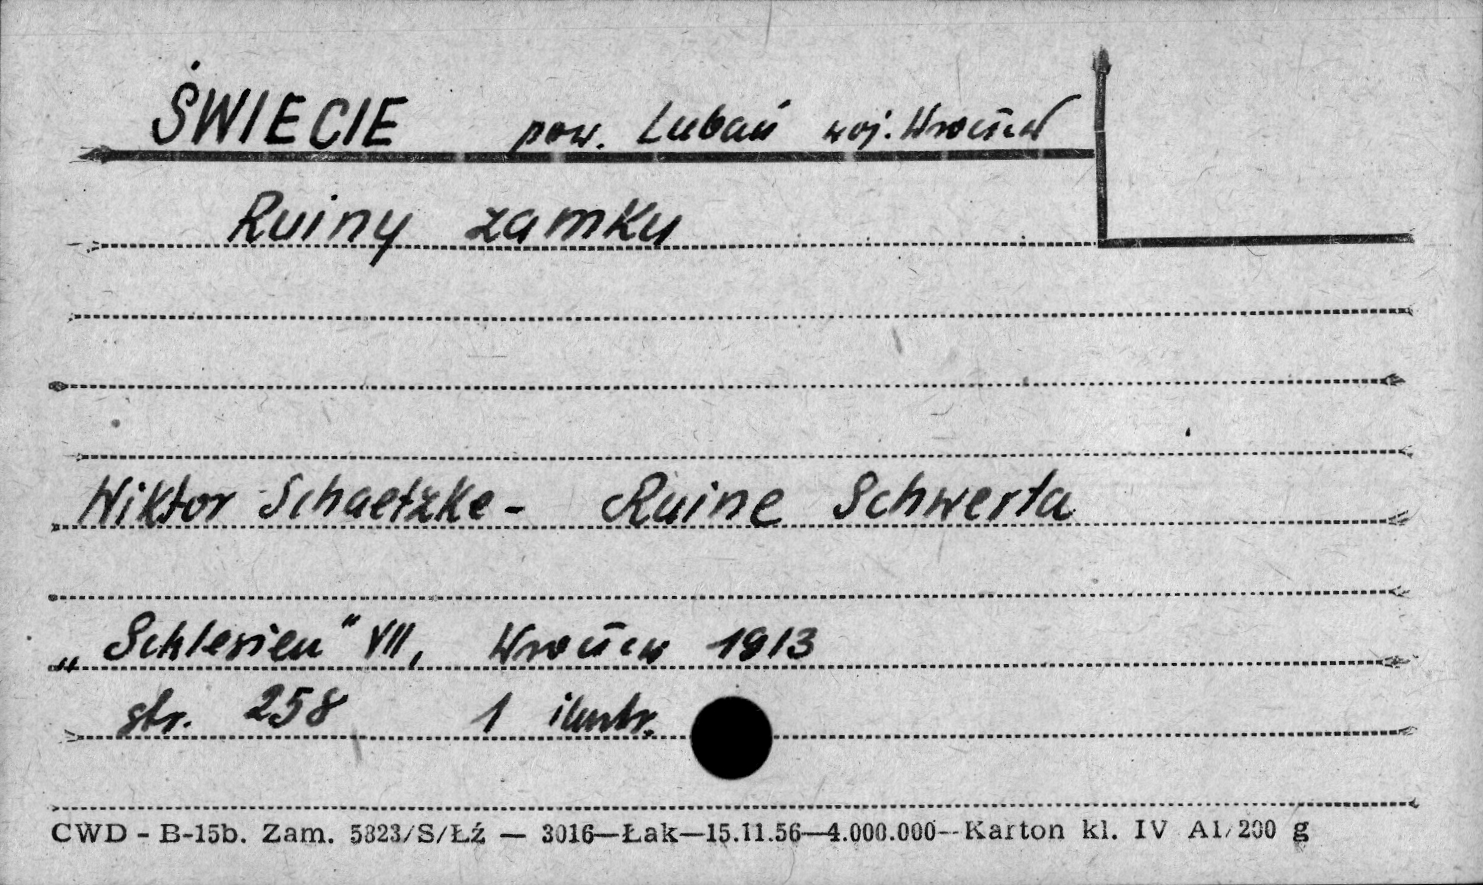 ŚWIECIE pow. Lubań woj. Wrocław
Ruiny zamku
Wiktor Schaetzke - Ruine Schwerta
„Schlesien" VII, Wrocław 1913
str. 258 1 ilustr.
CWD - B-15b. Zam. 5823/S/Łź — 3016—Łak—15.11.56—4.000.000--Karton kl. IV A1/200 g